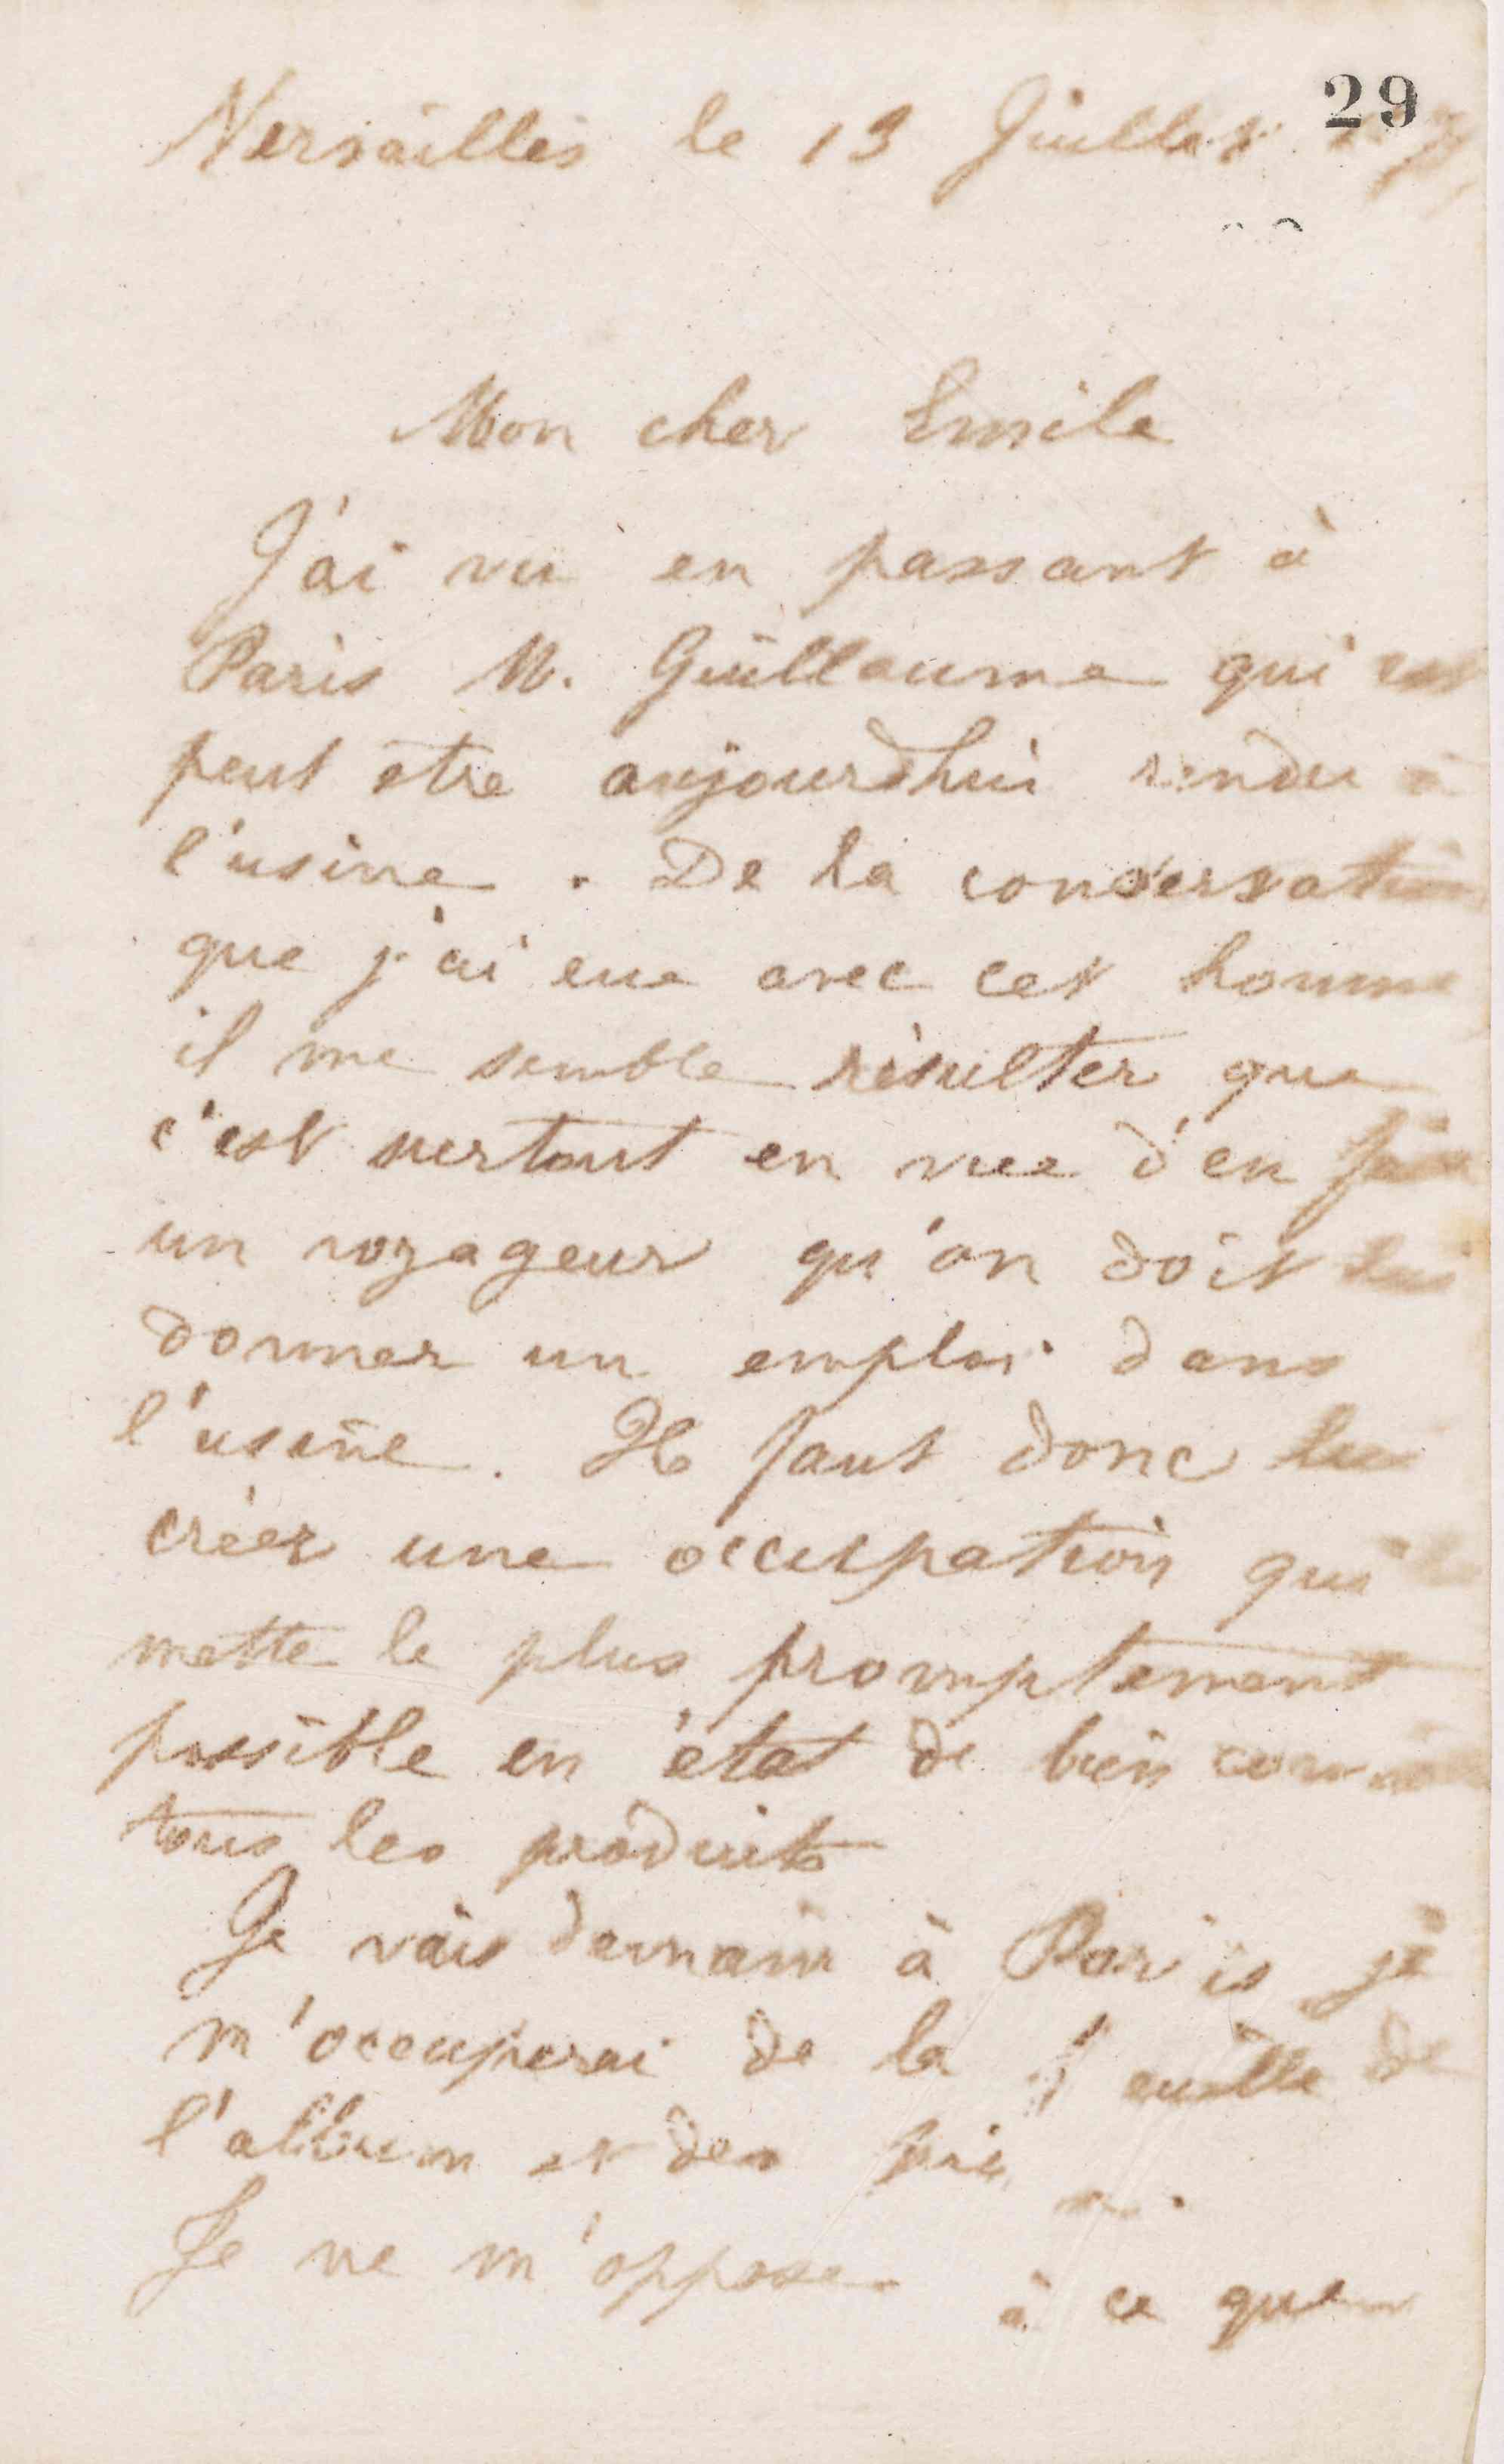 29
Versailles le 13 Juillet
Mon cher Emile
J'ai vu en passant à
Paris M. Guillaume qui est
peut etre aujourdhui rendu à
l'usine. De la conversation
que j'ai eue avec cet homme
il me semble résulter que
c'est surtout en vue d'en faire
un voyageur qu'on doit lui
donner un emploi dans
l'usine. Il faut donc lui
créer une occupation qui
mette le plus promptement
possible en état de bien
tous les produits
Je vais demain à Paris je
m'occuperai de la feuille de
l'album et des
Je ne m'oppose à ce que